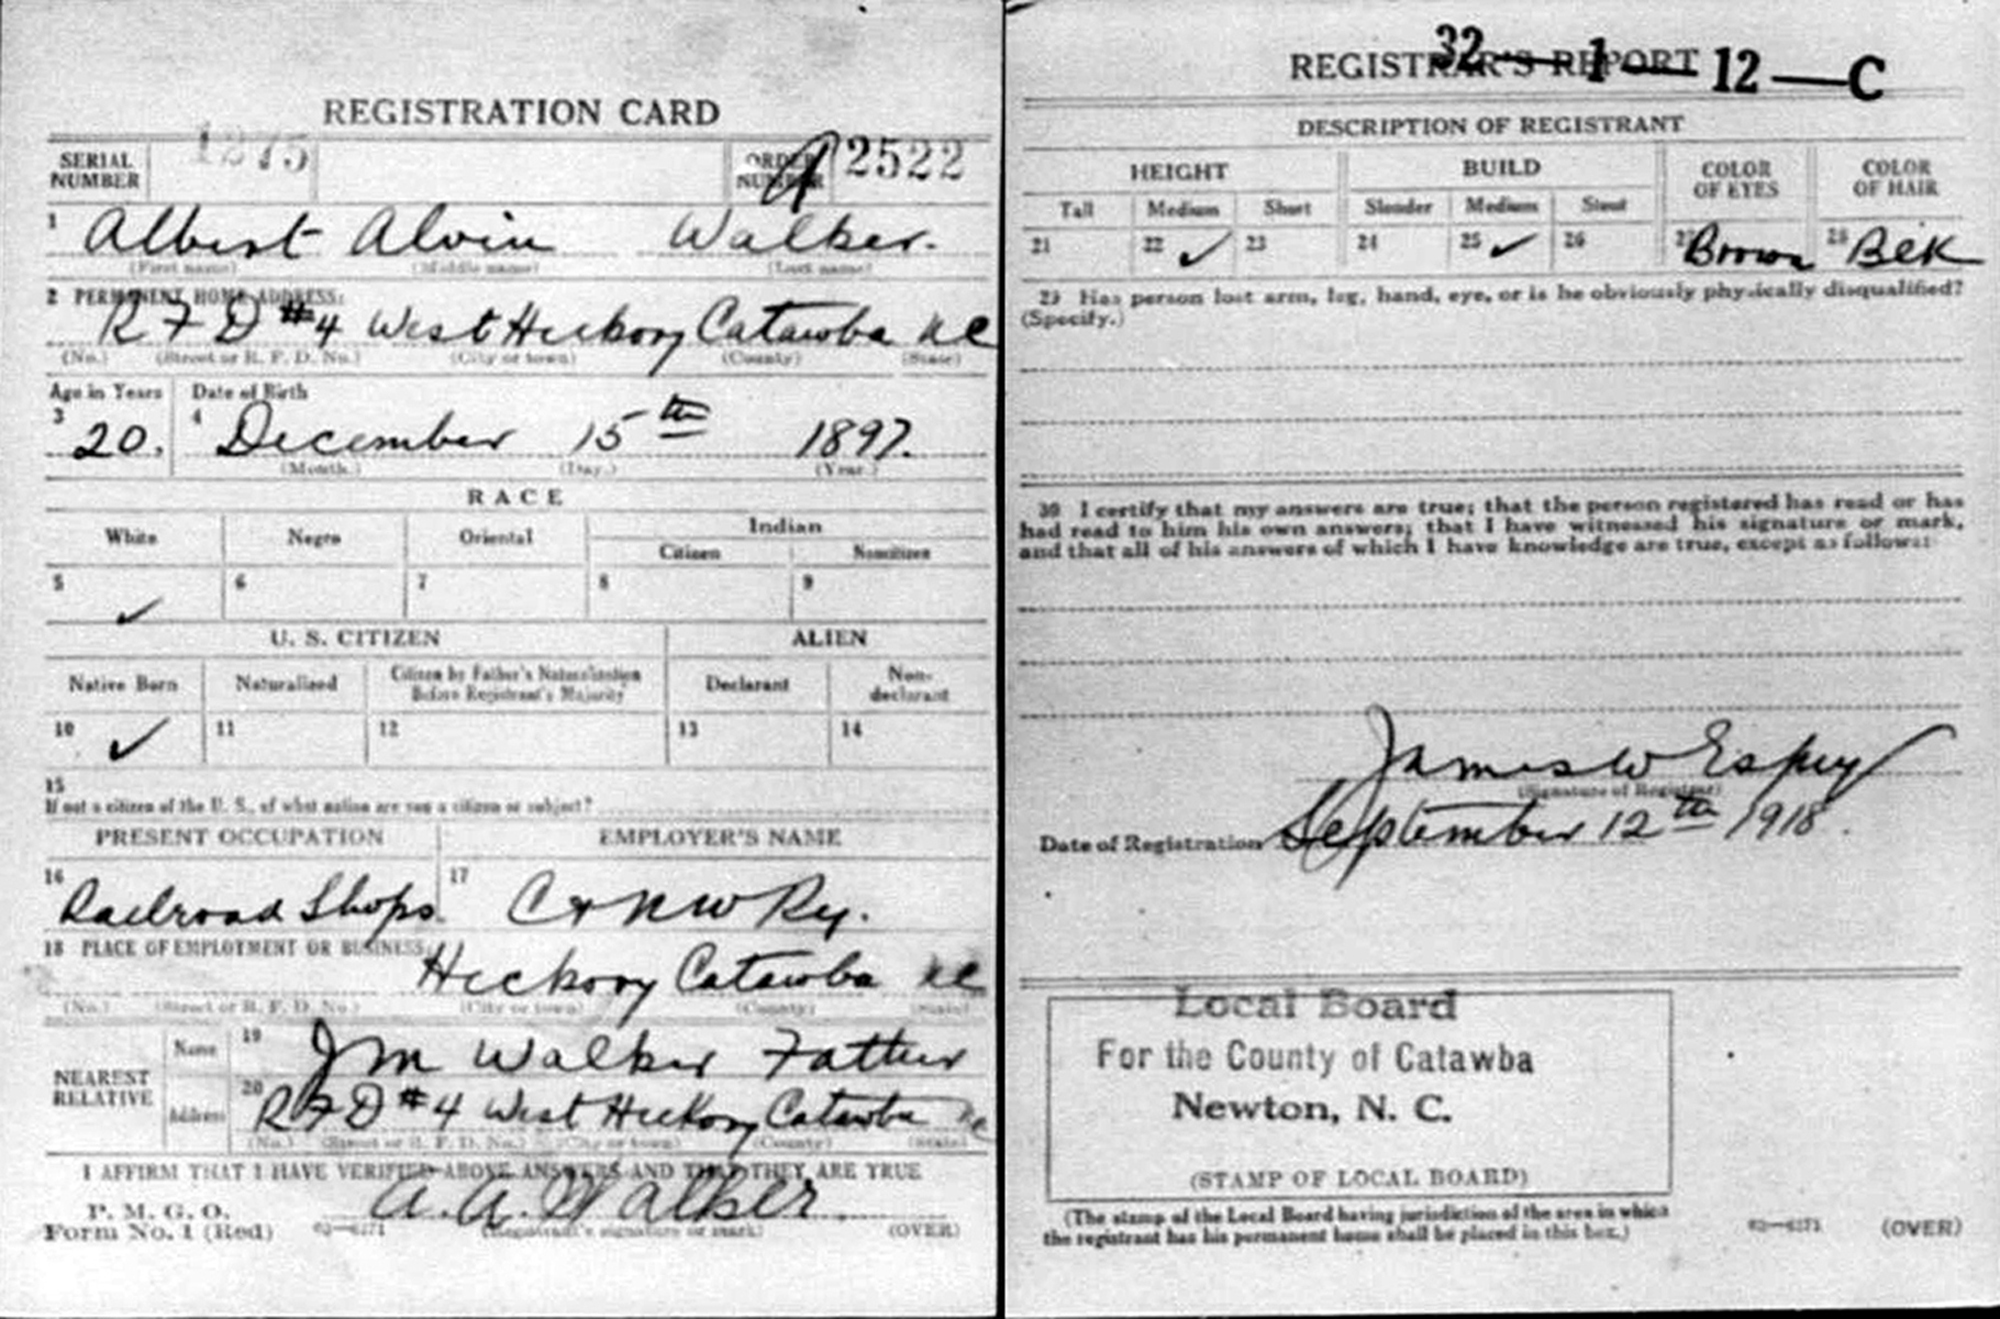 REGISTRATION CARD
SERIAL NUMBER 1275 ORDER NUMBER A 2522
1 Albert Alvin Walker.
(First name) (Middle name) (Last name)
2 PERMANENT HOME ADDRESS:
R F D #4 West Hickory Catawba NC
(No.) (Street or R. F. D. No.) (City or town) (County) (State)
Age in Years Date of Birth
3 20. 4 December 15th 1897.
(Month.) (Day.) (Year.)
RACE
White Negro Oriental Indian
Citizen Noncitizen
5 ✓ 6 7 8 9
U. S. CITIZEN ALIEN
Native Born Naturalized Citizen by Father's Naturalization Before Registrant's Majority Declarant Non-declarant
10 ✓ 11 12 13 14
15
If not a citizen of the U. S., of what nation are you a citizen or subject?
PRESENT OCCUPATION EMPLOYER'S NAME
16 Railroad Shops. 17 C & N W Ry.
18 PLACE OF EMPLOYMENT OR BUSINESS:
Hickory Catawba NC
(No.) (Street or R. F. D. No.) (City or town) (County) (State)
NEAREST RELATIVE
Name 19 J M Walker Father
Address 20 R F D #4 West Hickory Catawba NC
(No.) (Street or R. F. D. No.) (City or town) (County) (State)
I AFFIRM THAT I HAVE VERIFIED ABOVE ANSWERS AND THAT THEY ARE TRUE
P. M. G. O.
Form No. 1 (Red) 03—6171 A. A. Walker (Registrant's signature or mark) (OVER)
REGISTRAR'S REPORT
32—1—12—C
DESCRIPTION OF REGISTRANT
HEIGHT BUILD COLOR OF EYES COLOR OF HAIR
Tall Medium Short Slender Medium Stout
21 22 ✓ 23 24 25 ✓ 26 27 Brown 28 Blk
29 Has person lost arm, leg, hand, eye, or is he obviously physically disqualified?
(Specify.)
30 I certify that my answers are true; that the person registered has read or has
had read to him his own answers; that I have witnessed his signature or mark,
and that all of his answers of which I have knowledge are true, except as follows:
James W Espey
(Signature of Registrar)
Date of Registration September 12th 1918.
Local Board
For the County of Catawba
Newton, N. C.
(STAMP OF LOCAL BOARD)
(The stamp of the Local Board having jurisdiction of the area in which
the registrant has his permanent home shall be placed in this box.)
03—6171 (OVER)